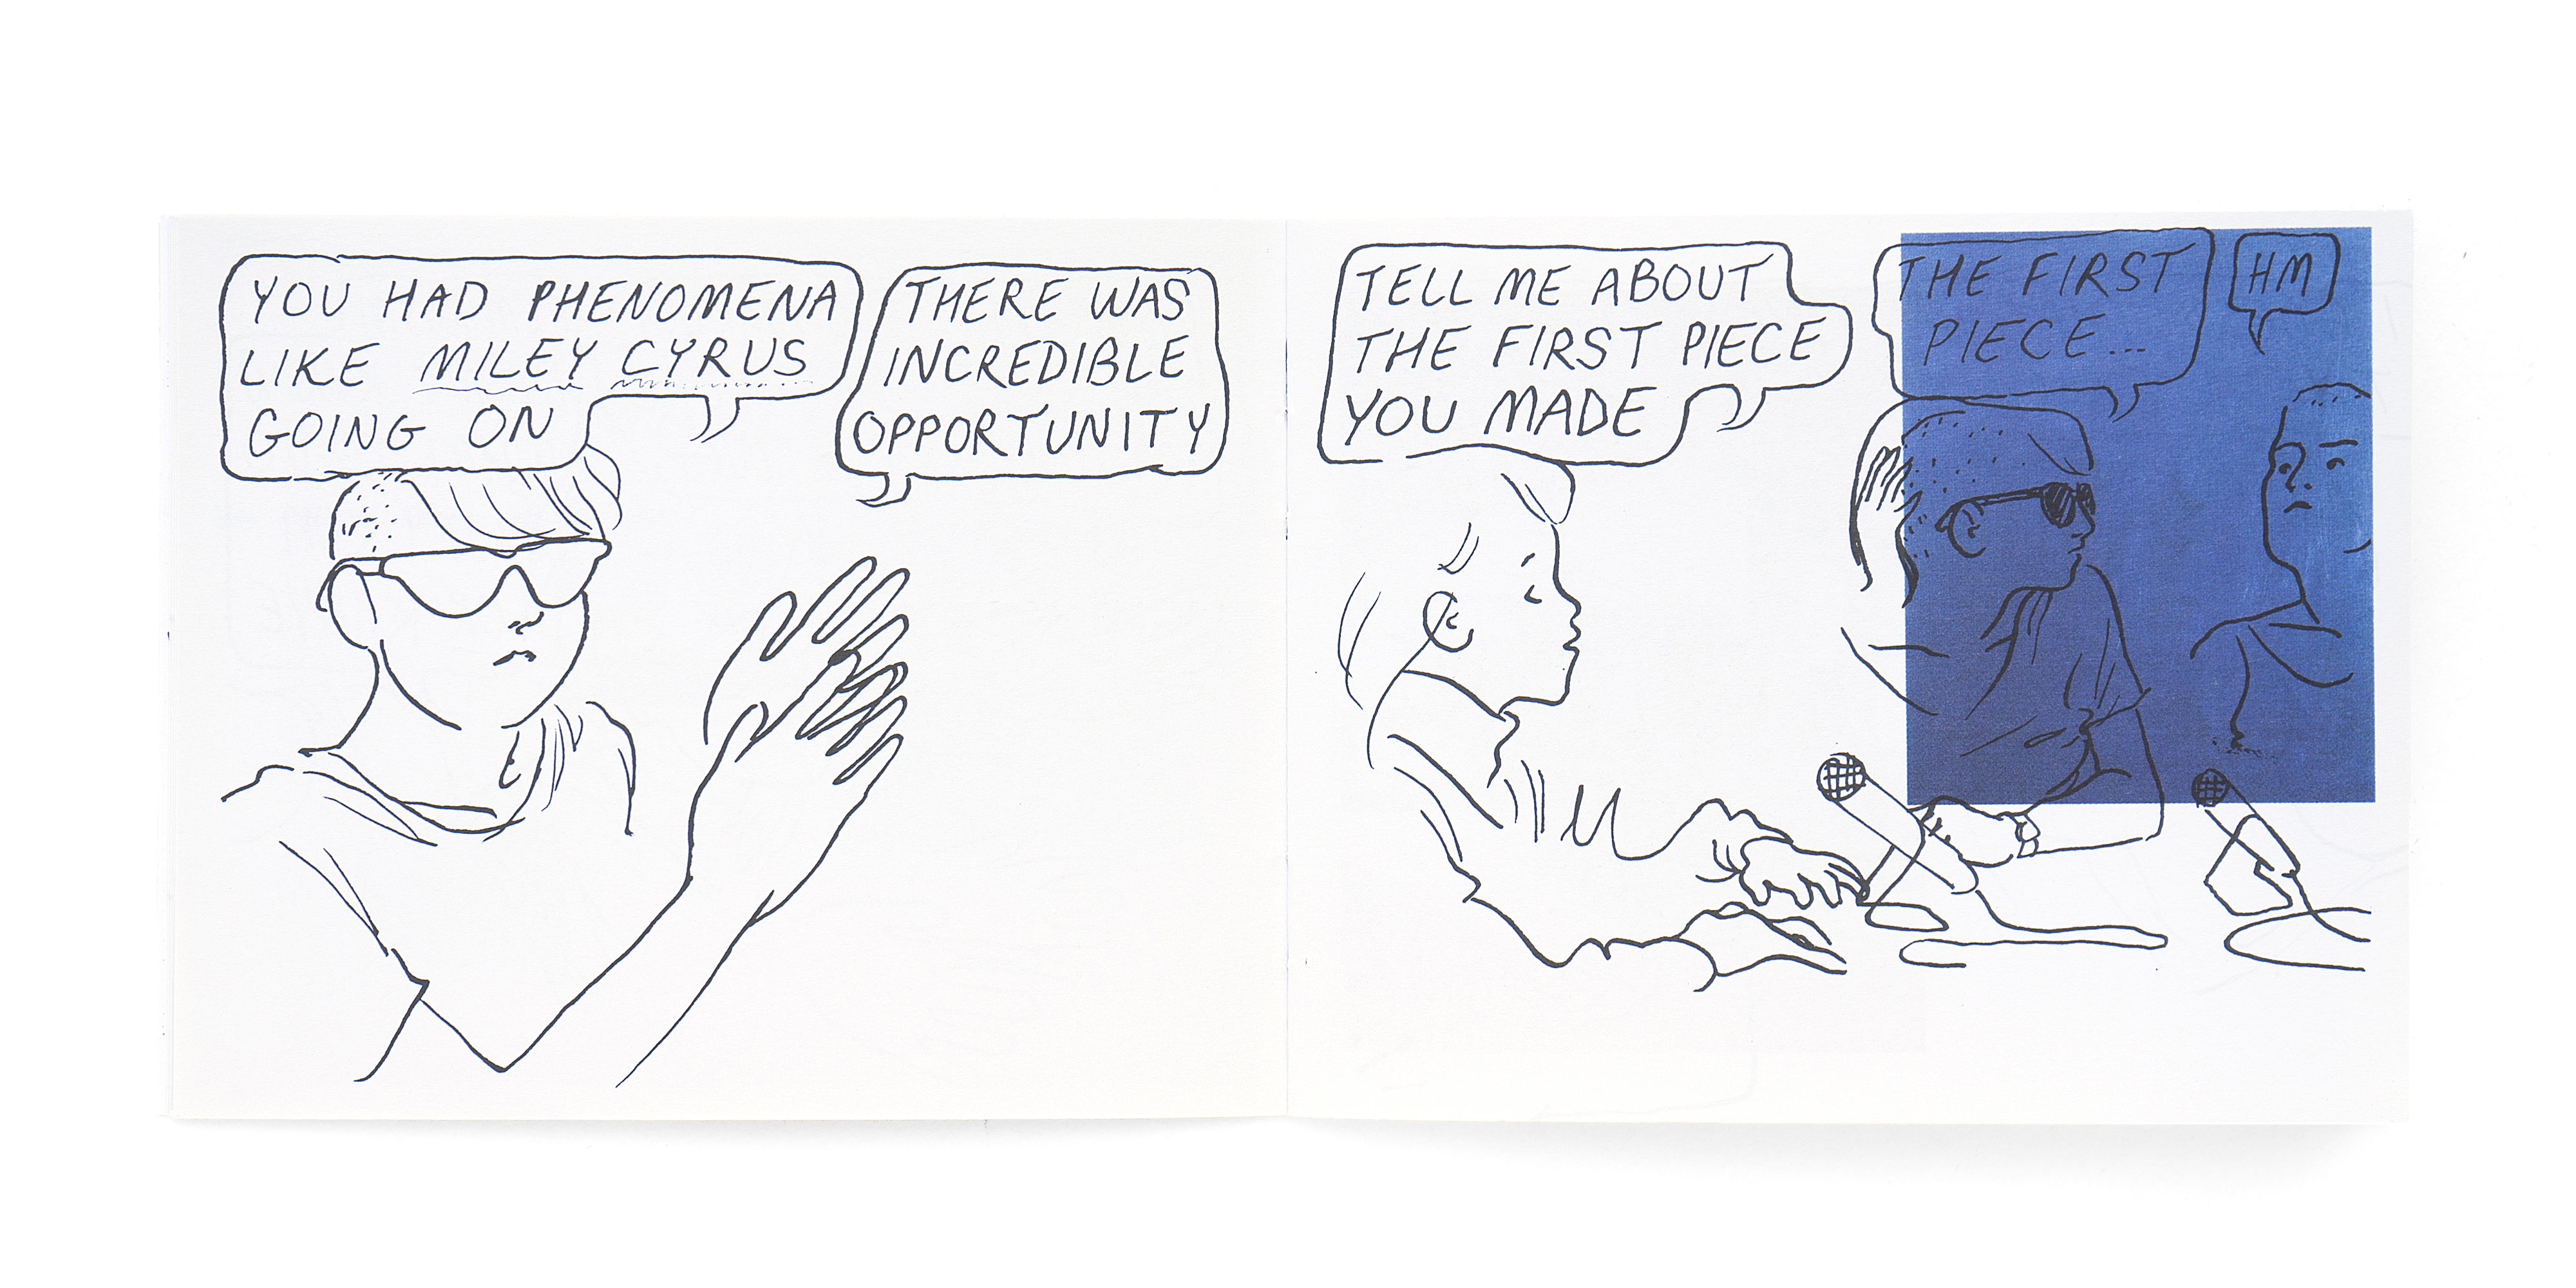 YOU HAD PHENOMENA
LIKE MILEY CYRUS
GOING ON
THERE WAS
INCREDIBLE
OPPORTUNITY
TELL ME ABOUT
THE FIRST PIECE
YOU MADE
THE FIRST
PIECE...
HM